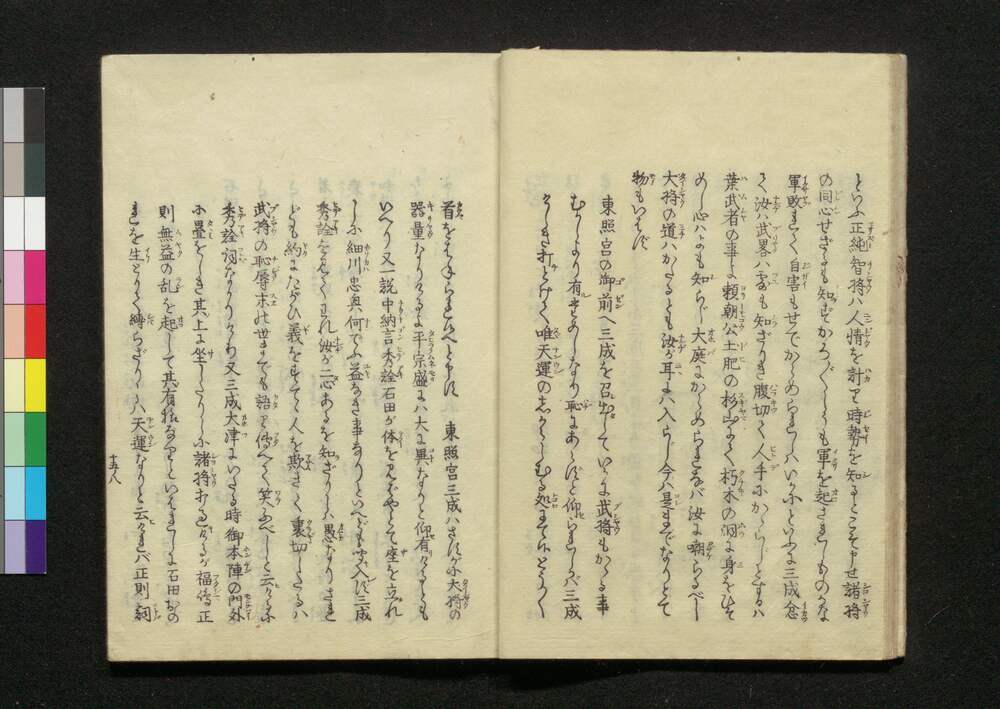 といふ正純智将ハ人情を計り時勢を知るとこそ申せ諸将
の同心せざるも知ずかろ〴〵しくも軍を起さましものかな
軍敗れて自害もせでからめられしハいかにといふに三成忿
て汝ハ武畧ハ露も知ざりき腹切て人手にかゝらじとするハ
葉武者の事よ頼朝公土肥の杉山にて朽木の洞に身をひそ
めし心ハよも知らじ大庭にからめられなバ汝に嘲らるべし
大将の道ハかたるとも汝が耳にハ入らじ今ハ是までなりとて
物もいはず
東照宮の御前へ三成を召出していかに武将もかゝる事
むかしより有ものしなり恥にあらずと仰られしかバ三成
うちとけて唯天運の志からしむる処にて候とく〳〵
首をはねられ候へと申す 東照宮三成ハさすが大将の
器量なりけるよ平宗盛にハ大に異なりと仰有けるとも
いへり又一説中納言秀詮石田が体を見ばやとて座を立れ
しに細川忠興何でふ益なき事なりといへども聞入ず三成
秀詮を見てわれ汝が二心あるを知ざりしハ愚なりされ
ども約にたがひ義をすてゝ人を欺きて裏切したるハ
武将の恥辱末の世までも語り傳へて笑ふべしと云けるに
秀詮詞なかりけり又三成大津にいたる時御本陣の門外
に畳をしき其上に坐したりしに諸将打通りけるが福嶋正
則無益の乱を起して其有様なりといはれしに石田おの
れを生どりて縛らざりしハ天運なりと云けれバ正則詞
十五ノ八